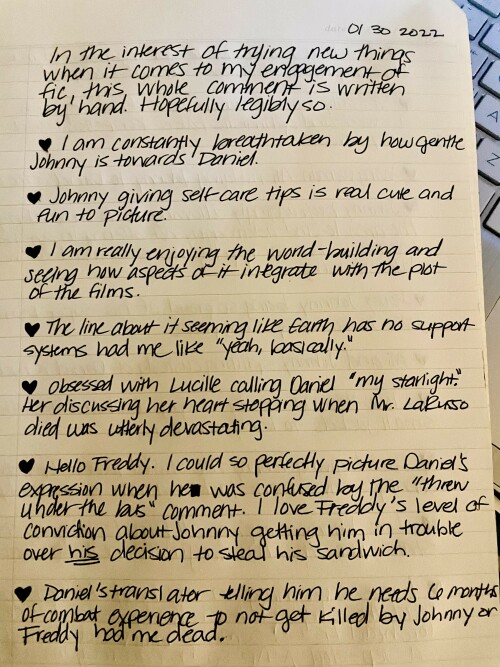 01 30 2022
In the interest of trying new things
when it comes to my engagement of
fic, this whole comment is written
by hand. Hopefully legibly so.
♥ I am constantly breathtaken by how gentle
Johnny is towards Daniel.
♥ Johnny giving self-care tips is real cute and
fun to picture.
♥ I am really enjoying the world-building and
seeing how aspects of it integrate with the plot
of the films.
♥ The line about it seeming like Earth has no support
systems had me like "yeah, basically."
♥ Obsessed with Lucille calling Daniel "my starlight."
Her discussing her heart stopping when Mr. LaRusso
died was utterly devastating.
♥ Hello Freddy. I could so perfectly picture Daniel's
expression when he was confused by the "threw
under the bus" comment. I love Freddy's level of
conviction about Johnny getting him in trouble
over his decision to steal his sandwich.
♥ Daniel's translator telling him he needs 6 months
of combat experience to not get killed by Johnny or
Freddy had me dead.